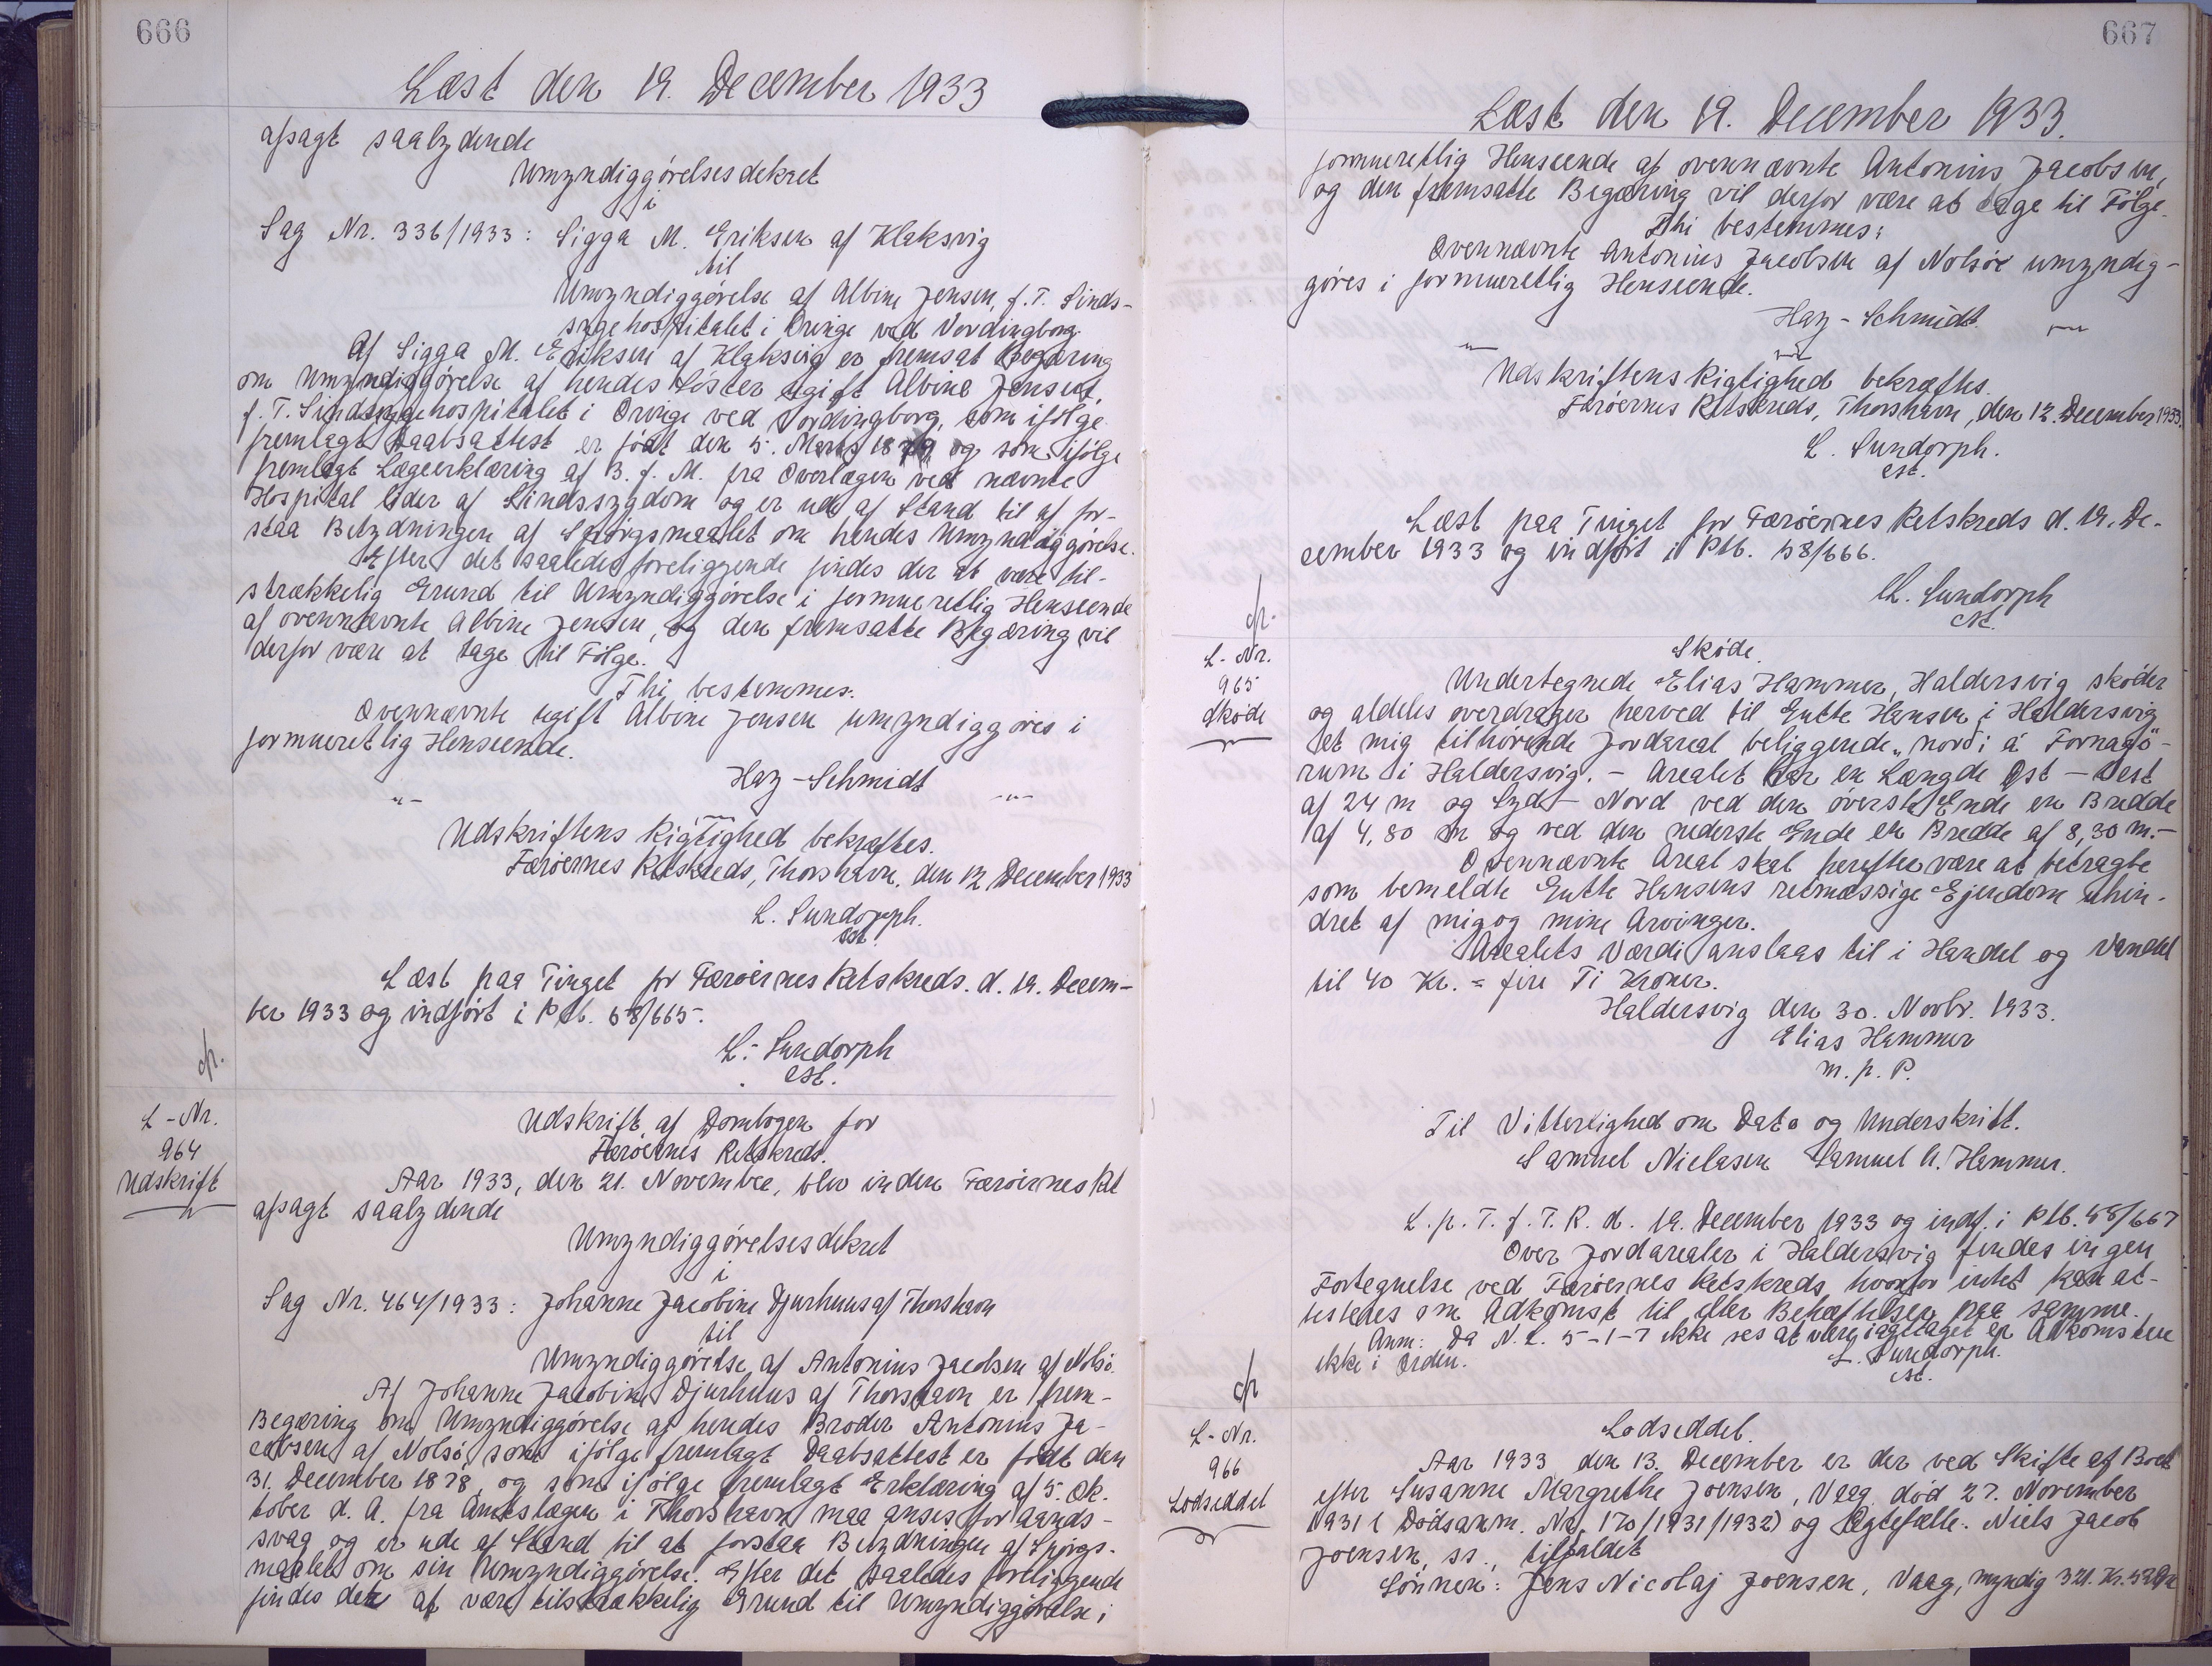 666
Læst den 19. December 1933
afsagt saalydende
Umyndiggörelsesdekret
i
Sag Nr. 336/1933: Sigga M. Eriksen af Klaksvig
til
Umyndiggörelse af Albine Jensen, f. T. Sinds-
sygehospitalet i Oringe ved Vordingborg.
Af Sigga M. Eriksen af Klaksvig er fremsat Begæring
om Umyndiggörelse af hendes Söster ugift Albine Jensen,
f. T. Sindssygehospitalet i Oringe ved Vordingborg, som ifölge
fremlagt Daabsattest er födt den 5. Marts 1879 og som ifölge
fremlagt Lægeerklæring af 3. f. M. fra Overlægen ved nævnte
Hospital lider af Sindssygdom og er ude af Stand til af for-
staa Betydningen af Spörgsmaalet om hendes Umyndiggörelse.
Efter det saaledes foreliggende findes der at være til-
strækkelig Grund til Umyndiggörelse i formueretlig Henseende
af ovennævnte Albine Jensen, og den fremsatte Begæring vil
derfor være at tage til Fölge.
Thi bestemmes:
Ovennævnte ugift Albine Jensen umyndiggöres i
formueretlig Henseende.
Hay-Schmidt
-"- -"-
Udskriftens Rigtighed bekræftes.
Færöernes Retskreds, Thorshavn, den 12 December 1933
L. Sundorph.
cst.
Læst paa Tinget for Færöernes Retskreds. d. 19. Decem-
ber 1933 og indfört i Ptb. 58/665.
L. Sundorph
cst.
cfr.
L-Nr.
964
Udskrift
Udskrift af Dombogen for
Færöernes Retskreds.
Aar 1933, den 21. November, blev inden Færöernes Ret
afsagt saalydende
Umyndiggörelsesdekret
i
Sag Nr. 464/1933: Johanne Jacobine Djurhuus af Thorshavn
til
Umyndiggörelse af Antonius Jacobsen af Nolsö.
Af Johanne Jacobine Djurhuus af Thorshavn er frem-
Begæring om Umyndiggörelse af hendes Broder Antonius Ja-
cobsen af Nolsö, som ifölge fremlagt Daabsattest er födt den
31. December 1878, og som ifölge fremlagt Erklæring af 5. Ok-
tober d. A. fra Amtslægen i Thorshavn maa anses for aands-
svag og er ude af Stand til at forstaa Betydningen af Spörgs-
maalet om sin Umyndiggörelse. Efter det saaledes foreliggende
findes der at være tilstrækkelig Grund til Umyndiggörelse i
667
Læst den 19. December 1933.
formueretlig Henseende af ovennævnte Antonius Jacobsen,
og den fremsatte Begæring vil derfor være at tage til Fölge.
Thi bestemmes:
Ovennævnte Antonius Jacobsen af Nolsöe umyndig-
göres i formueretlig Henseende.
Hay-Schmidt.
-"- -"- -"-
Udskriftens Rigtighed bekræftes.
Færöernes Retskreds, Thorshavn, den 12. December 1933.
L. Sundorph.
cst.
Læst paa Tinget for Færöernes Retskreds d. 19. De-
cember 1933 og indfört i Ptb. 58/666.
L. Sundorph
cst.
cfr.
L-Nr.
965
Sköde
Sköde.
Undertegnede Elias Hammer, Haldersvig sköder
og aldeles overdrager herved til Gutte Hansen i Haldersvig
et mig tilhörende Jordareal beliggende "nordi á Fornagö-
rum i Haldersvig. - Arealet har en Længde Öst - Vest
af 24 m og Syd - Nord ved den överste Ende en Bredde
af 4,80 m og ved den nederste Ende en Bredde af 8,30 m. -
Ovennævnte Areal skal herefter være at betragte
som bemeldte Gutte Hansens retmæssige Ejendom uhin-
dret af mig og mine Arvinger.
Arealets Værdi anslaas til i Handel og Vandel
til 40 Kr. = fire Ti Kroner.
Haldersvig den 30. Novbr. 1933.
Elias Hammer
m. p. P.
Til Vitterlighed om Dato og Underskrift.
Samuel Nielasen Samuel A. Hammer.
L. p. T. f. F. R. d. 19. December 1933 og indf. i Ptb. 58/667
Over Jordarealer i Haldersvig findes ingen
Fortegnelse ved Færöernes Retskreds, hvorfor intet kan at-
testeres om Adkomst til eller Behæftelser paa samme.
Anm: Da N. L. 5-1-7 ikke ses at være iagttaget er Adkomsten
ikke i Orden. L. Sundorph.
cst.
cfr
L-Nr.
966
Lodseddel
Lodseddel.
Aar 1933 den 13. December er der ved Skifte af Boet
efter Susanne Margrethe Joensen, Vaag död 27. November
1931 (Dödsanm. Nr. 170/1931/1932) og Ægtefælle: Niels Jacob
Joensen, ss., tilfaldet
Sönnen: Jens Nicolaj Joensen, Vaag, myndig 321. Kr. 52 Öre